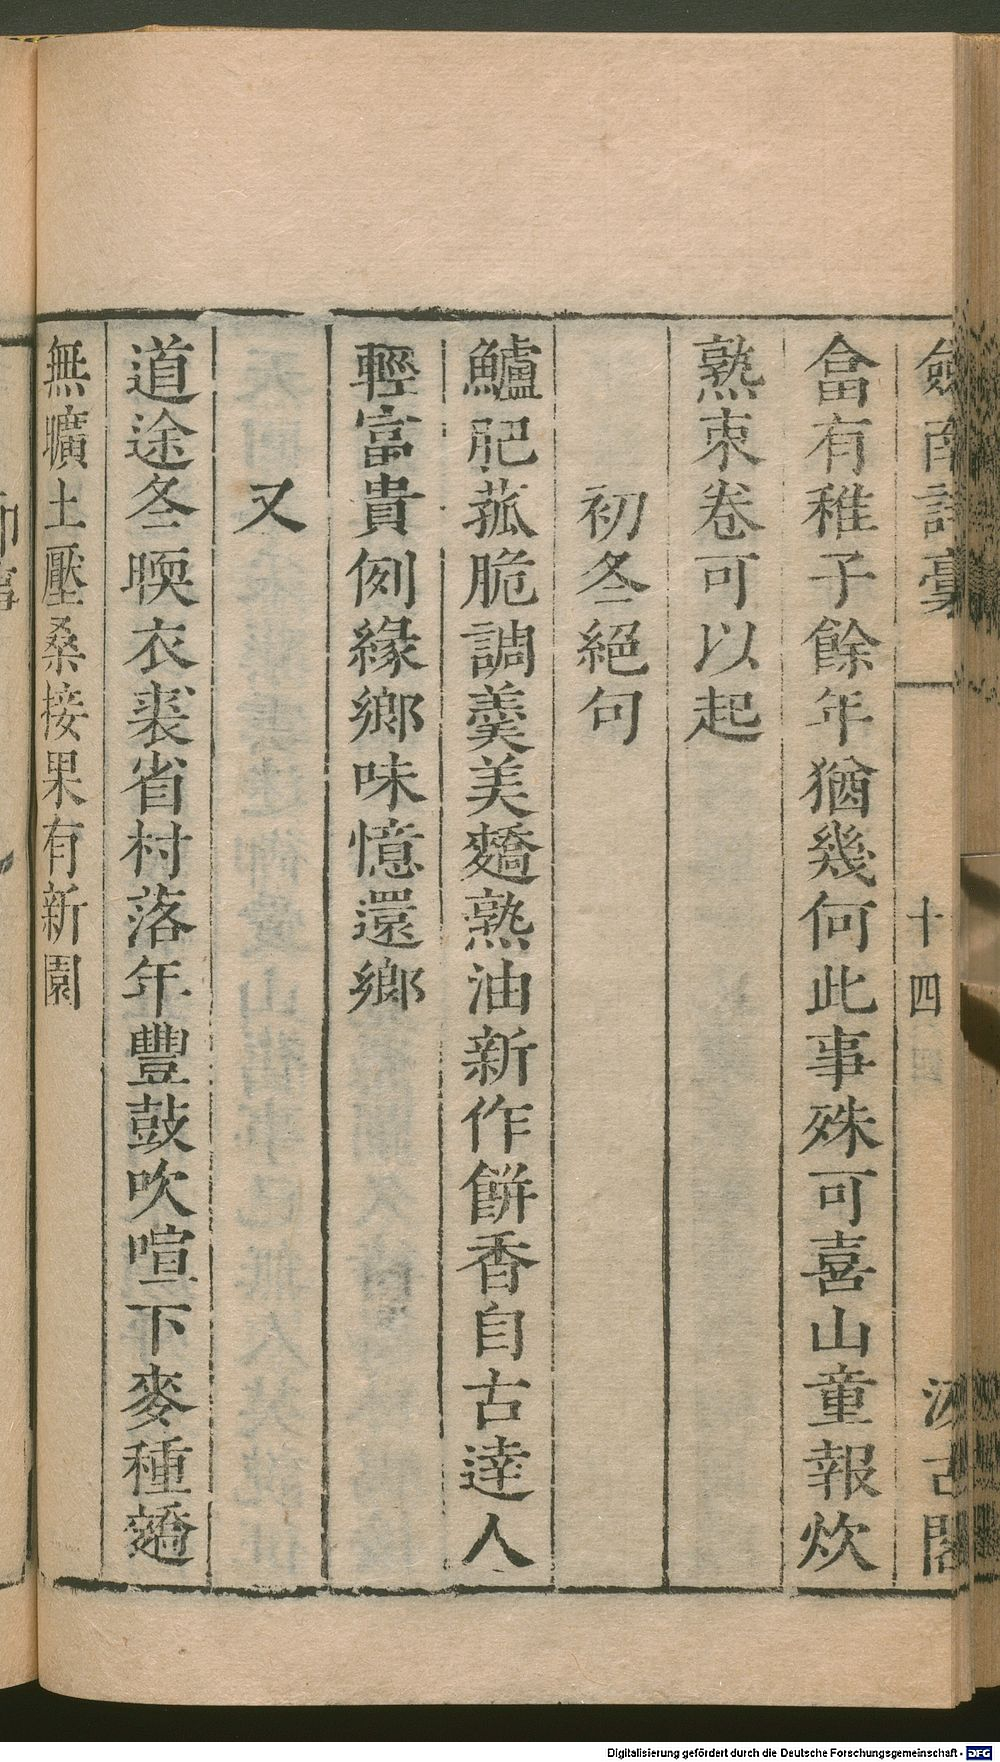 劒南詩稾 十四 汲古閣
畬有稚子餘年猶幾何此事殊可喜山童報炊
熟束卷可以起
初冬絕句
鱸肥菰脆調羹美麴熟油新作餅香自古達人
輕富貴例緣鄉味憶還鄉
又
道途冬暖衣裘省村落年豐鼓吹喧下麥種麴
無曠土壓桑接果有新園
Digitalisierung gefördert durch die Deutsche Forschungsgemeinschaft - DFG